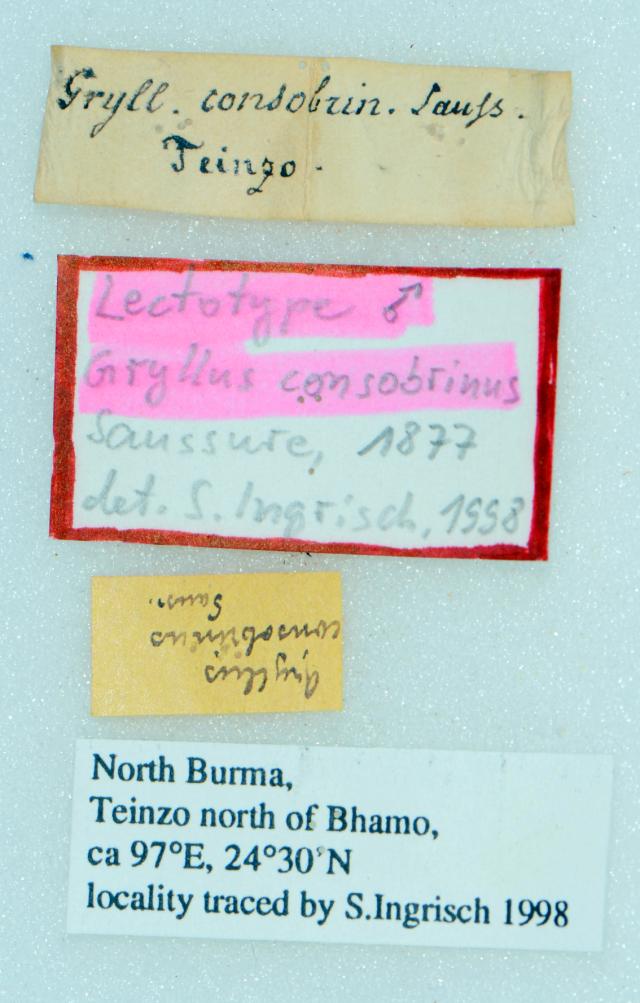 Gryll. consobrin. Sauss.
Teinzo.
Lectotype ♂
Gryllus consobrinus
Saussure, 1877
det. S. Ingrisch, 1998
Gryllus
consobrinus
Sauss.
North Burma,
Teinzo north of Bhamo,
ca 97°E, 24°30'N
locality traced by S.Ingrisch 1998